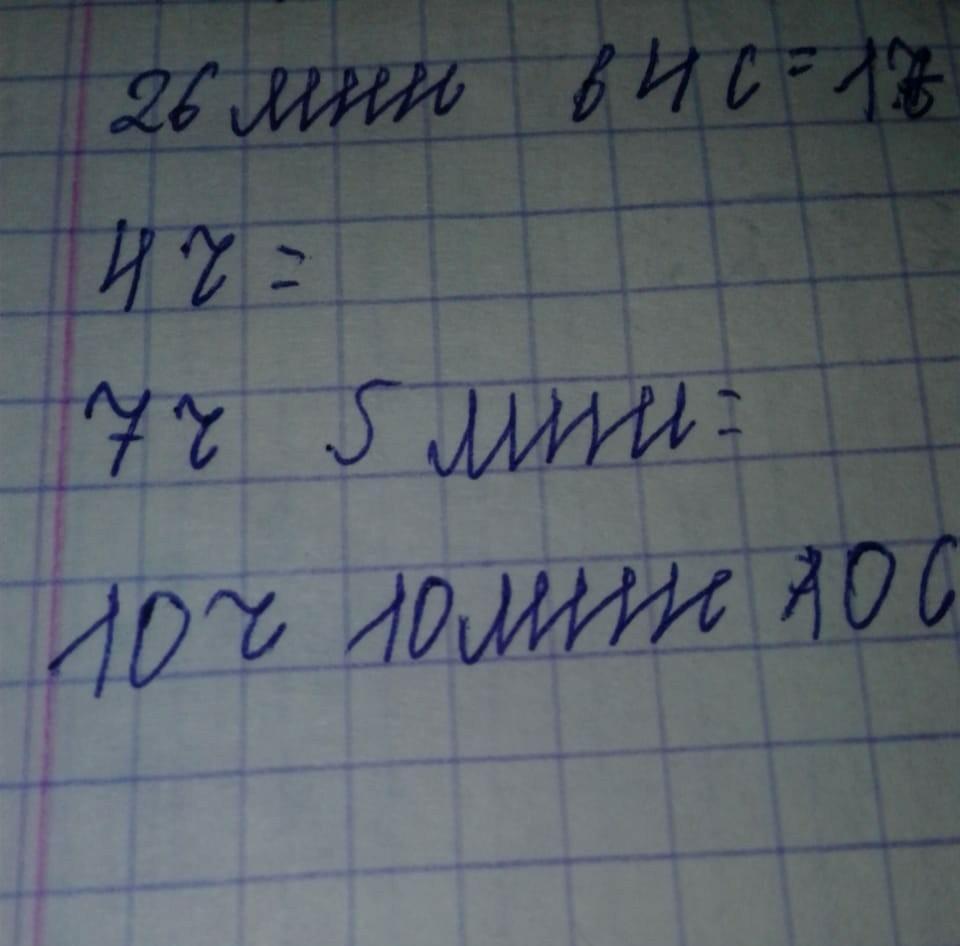 26 мин 64 с = 1
4 ч =
7 ч 5 мин =
10 ч 10 мин 10 с